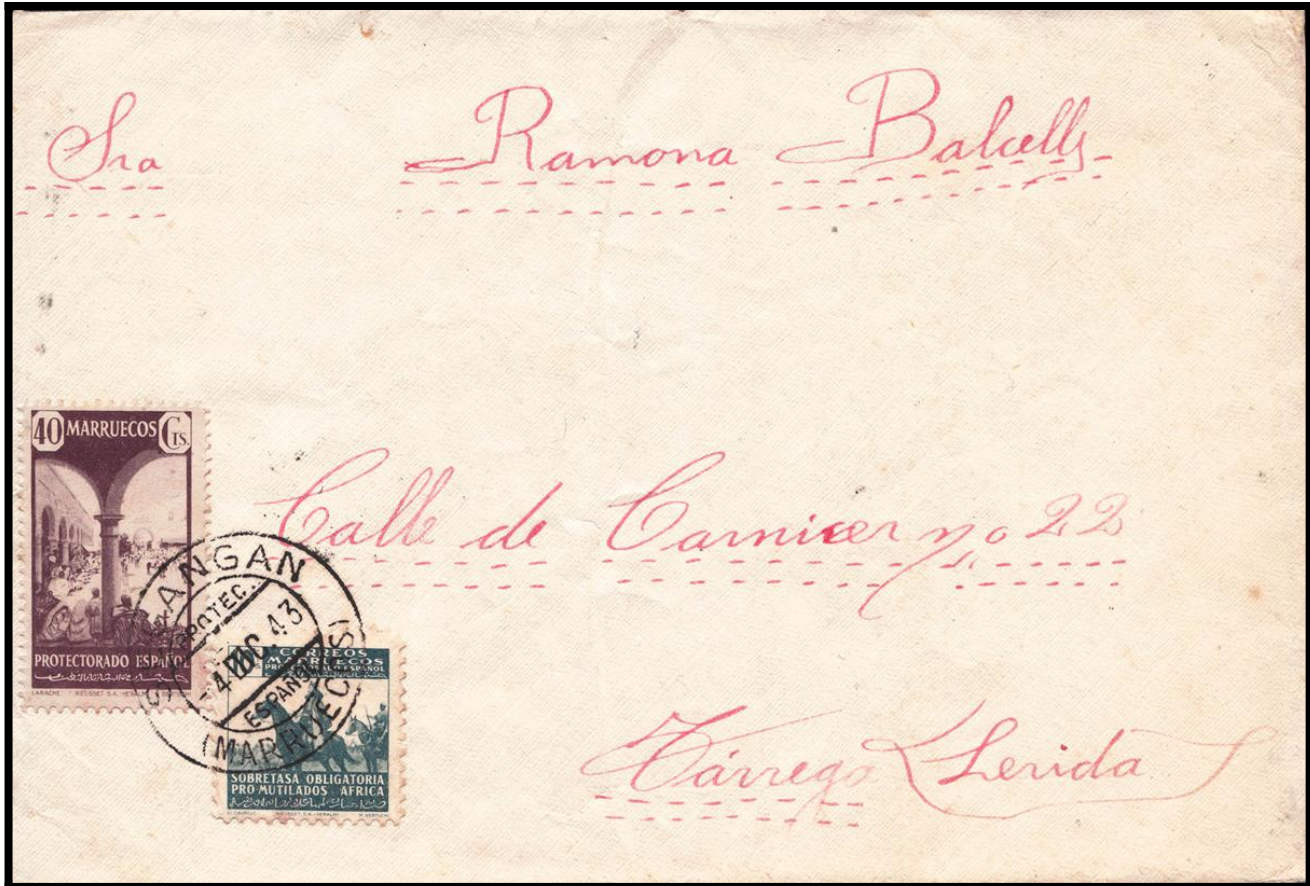 Sra Ramona Balcells
Calle de Carnicer nº 22
Tárrega Lerida
40 MARRUECOS CTS.
PROTECTORADO ESPAÑOL
LARACHE RIEUSSET S.A.
ANGAN
PROTEC.
4 DIC. 43
ESPAÑOL
(MARRUECOS)
CORREOS
MARRUECOS
ESPAÑOL
SOBRETASA OBLIGATORIA
PRO MUTILADOS AFRICA
RIEUSSET, S.A.